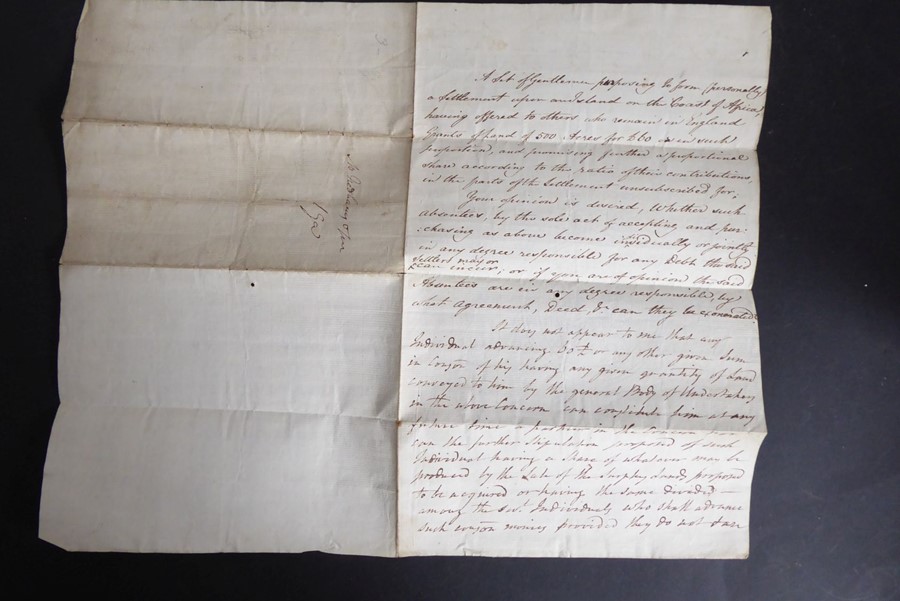 A Set of Gentlemen purposing to form (personally)
a Settlement upon an Island on the Coast of Africa,
having offered to others who remain in England
Grants of Land of 500 Acres for £60 in such
proportion, and promising further a proportional
share according to the ratio of their contributions,
in the parts of the Settlement unsubscribed for,
Your opinion is desired, Whether such
absentees, by this sole act of accepting and pur-
-chasing as above become individually or jointly
in any degree responsible for any Debt the said
Settlers may or
can incur, or if you are of opinion the said
Absentees are in any degree responsible, by
what Agreement, Deed, &c can they be exonerated.
It does not appear to me that any
Individual advancing or any other given Sum
in Conson of his having any given quantity of Land
conveyed to him by the general Body of Undertakers
in the above Concern can constitute him at any
future time a partner in the Concern nor
can the further Stipulation proposed of such
Individual having a Share of whatever may be
produced by the Sale of the Surplus Lands proposed
to be acquired or having the same divided —
among the sevl Individuals who shall advance
such conson money provided they do not